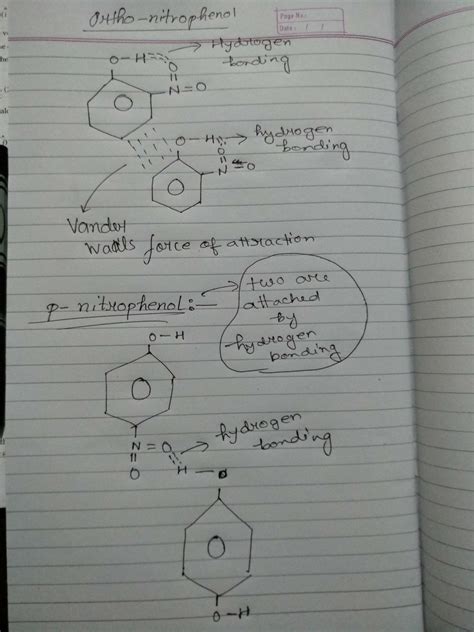 Ortho-nitrophenol
Page No.:
Date: / /
Hydrogen
bonding
O-H
O
N=O
hydrogen
bonding
O-H
O
N=O
Vander
waals force of attraction
p-nitrophenol:-
two are
attached
by
hydrogen
bonding
O-H
N=O
O
hydrogen
bonding
H-O
O-H